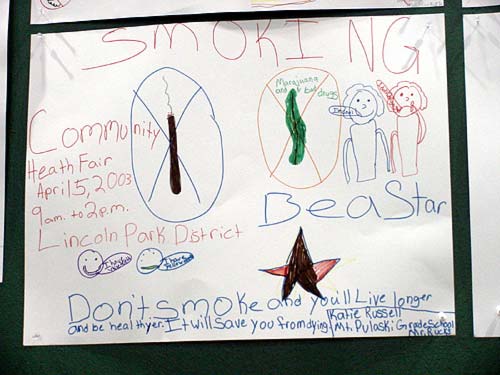 SMOKING
Marajuana
and bad
drugs
Community
Heath Fair
April 5, 2003
9am. to 2p.m.
Lincoln Park District
Be a Star
Don't smoke and you'll Live longer
and be healthyer. It will save you from dying.
Katie Russell
Mt. Pulaski Grade School